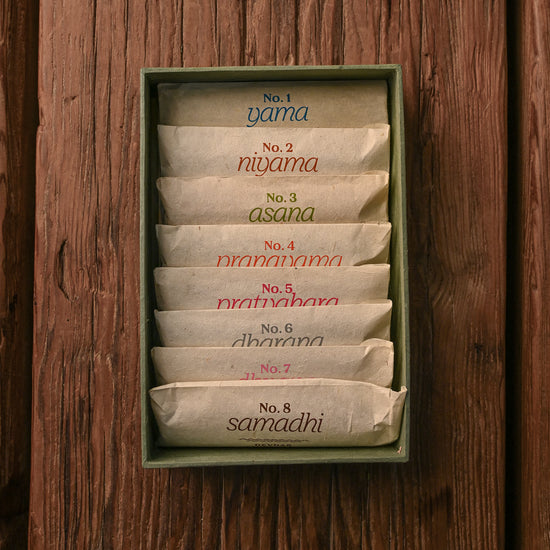 No. 1
yama
No. 2
niyama
No. 3
asana
No. 4
pranayama
No. 5
pratyahara
No. 6
dharana
No. 7
No. 8
samadhi